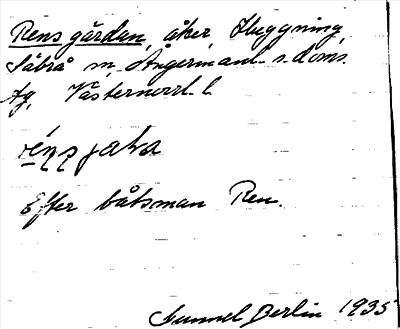 Rensgärdan, åker, Huggning,
Säbrå sn, Ångermanl. s. doms.
Åg, Västernorrl. l.
Efter båtsman Ren.
Gunnel Berlin 1935